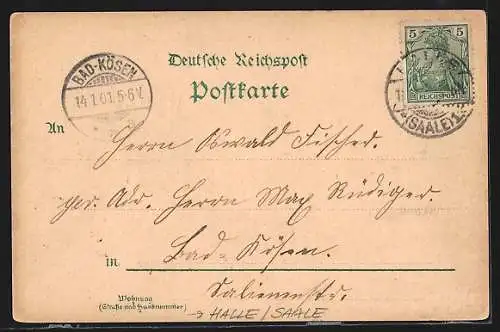 BAD-KÖSEN
14.1.01.5-6V.
Deutsche Reichspost
Postkarte
5 5
REICHSPOST
(SAALE)
An
Herrn Oswald Fischer.
per Adr. Herrn Max Rüdiger.
in Bad-Kösen.
Wohnung
(Straße und Hausnummer)
Salinenstr.
→ HALLE/SAALE